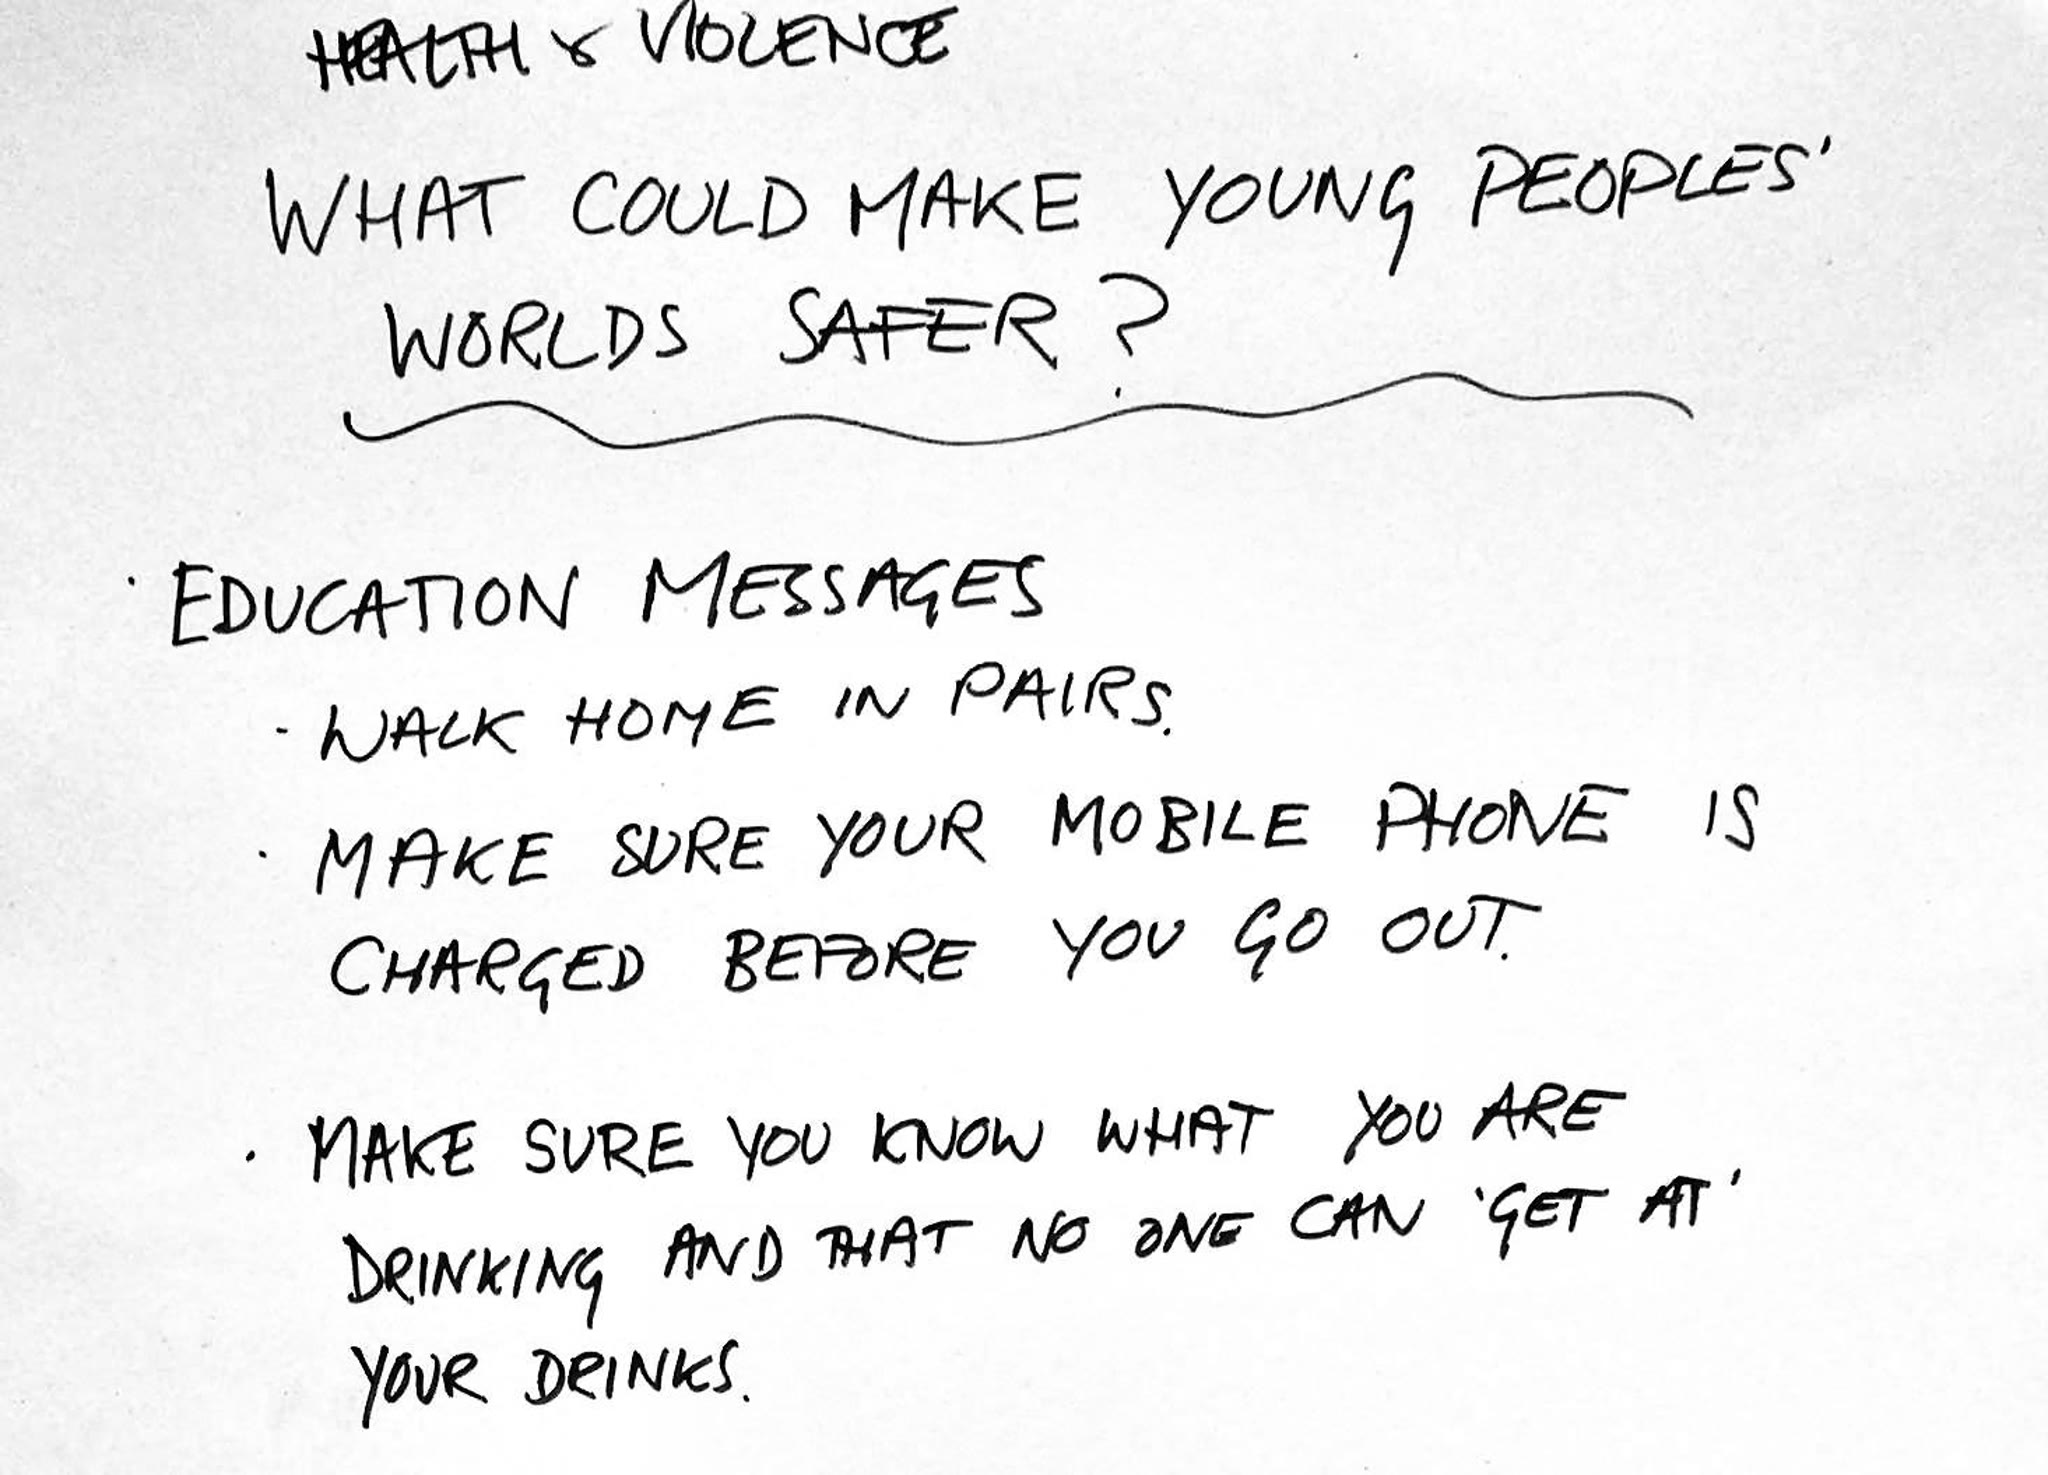 HEALTH & VIOLENCE
WHAT COULD MAKE YOUNG PEOPLES'
WORLDS SAFER?
· EDUCATION MESSAGES
- WALK HOME IN PAIRS.
· MAKE SURE YOUR MOBILE PHONE IS
CHARGED BEFORE YOU GO OUT.
· MAKE SURE YOU KNOW WHAT YOU ARE
DRINKING AND THAT NO ONE CAN 'GET AT'
YOUR DRINKS.